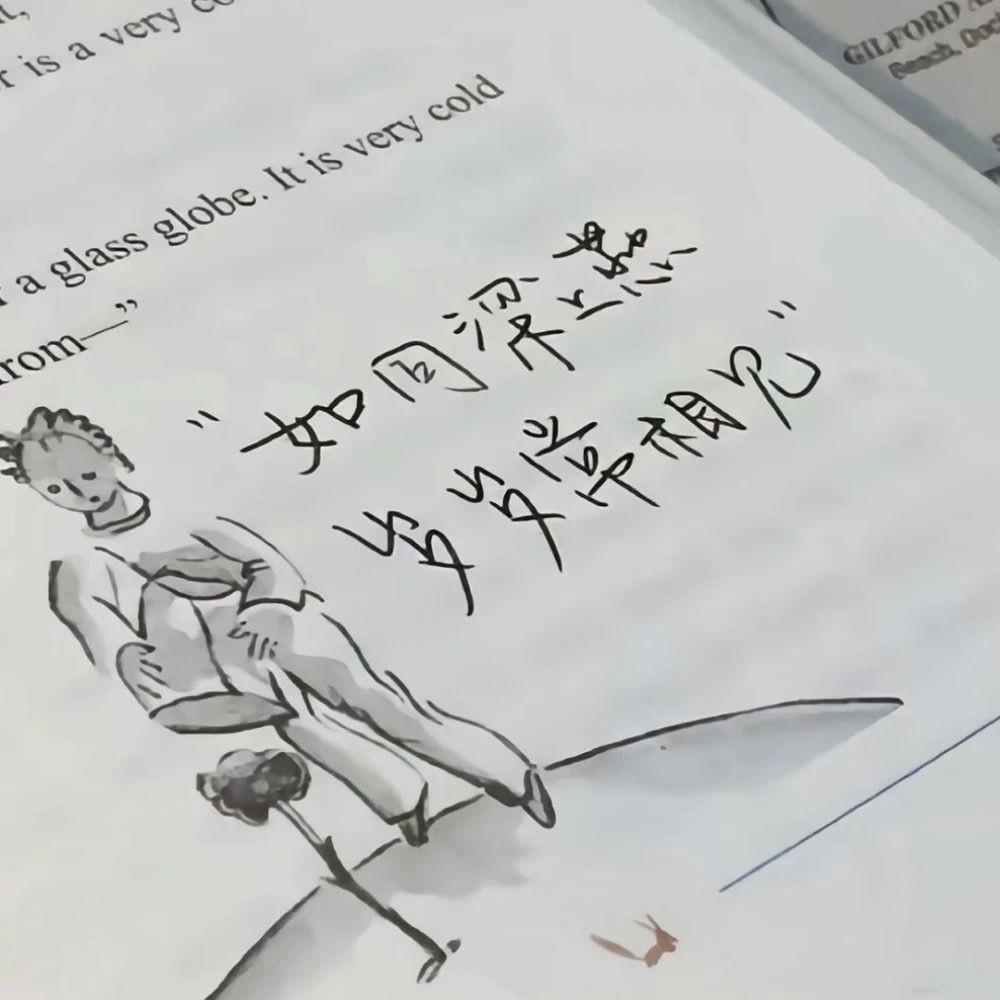 is a very
a glass globe. It is very cold
rom—”
GILFORD
Beach, Doc
“如同梁上燕
岁岁常相见”